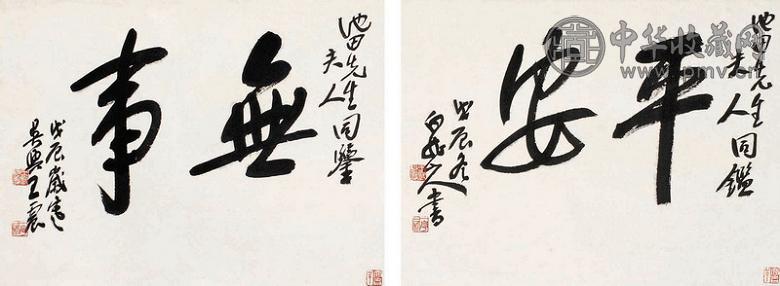 池田先生
夫人同鑑
平安
戊辰冬
白龍山人書
池田先生
夫人同鑒
無事
戊辰歲寒
吳興王震
中华收藏网